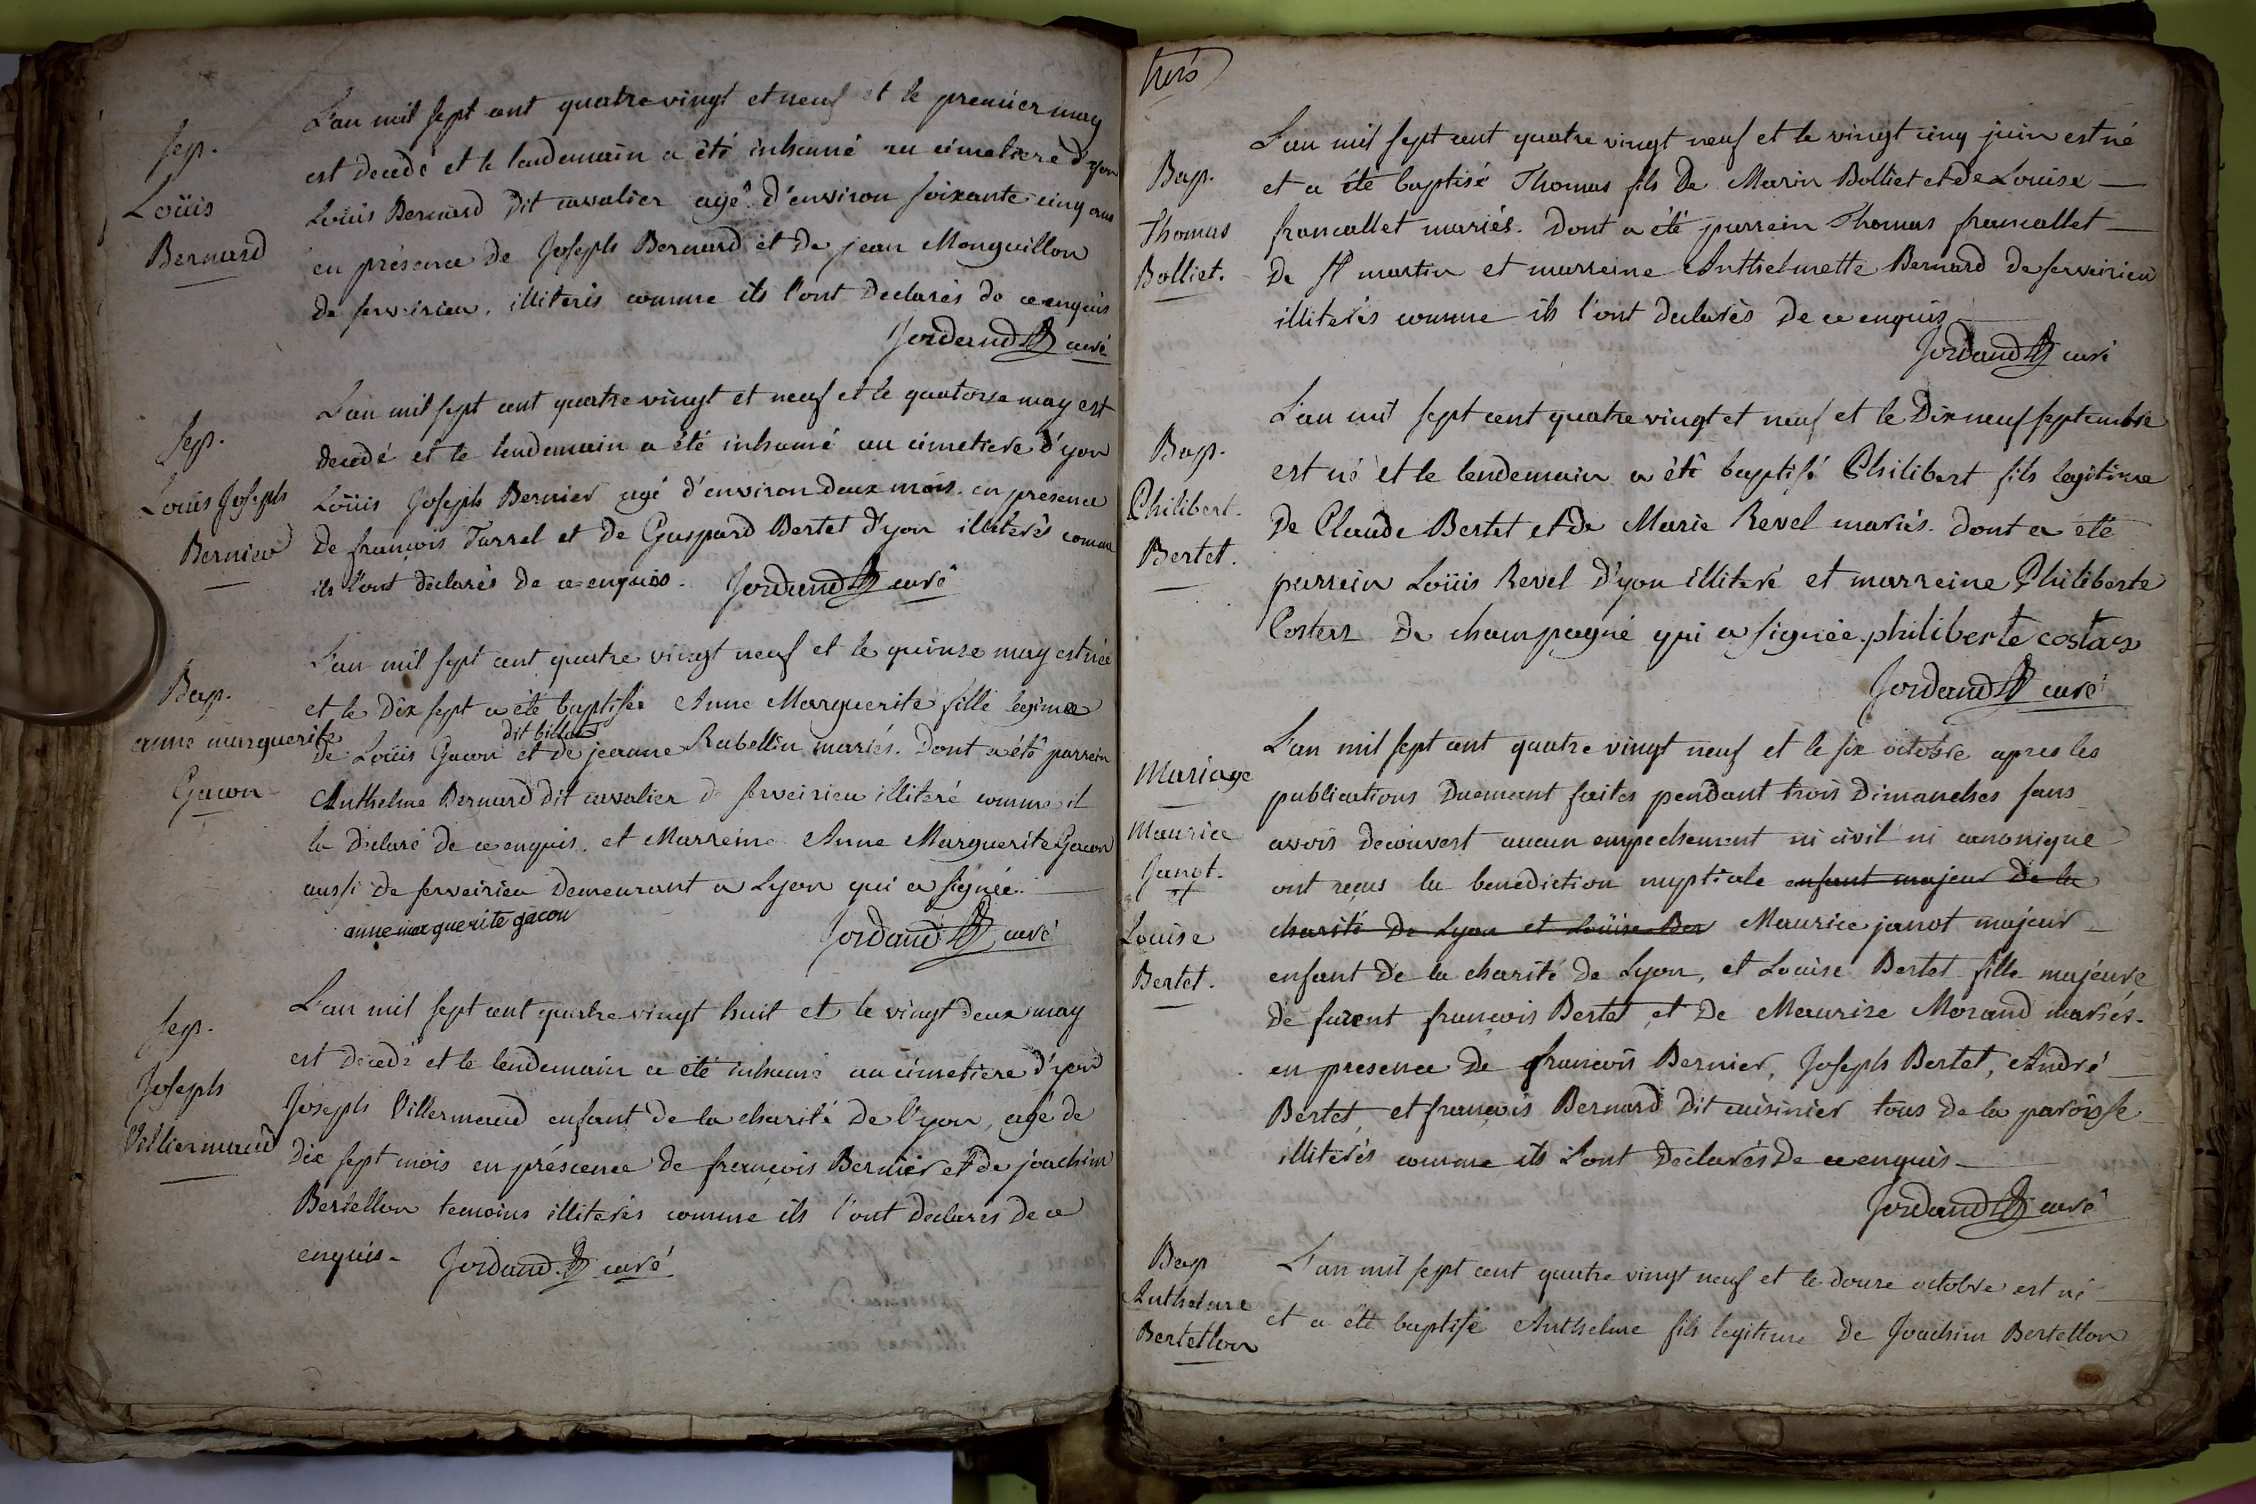 Sep.
Loüis
Bernard
L'an mil sept cent quatre vingt et neuf et le premier may
est decedé et le lendemain a été inhumé au cimetiere d'yon
Loüis Bernard dit cavalier agé d'environ soixante cinq ans
en présence de Joseph Bernard et de jean Monguillon
de serveirieu, illiterés comme ils l'ont declarés de ce enquis
Jordand curé
Sep.
Loüis Joseph
Bernier
L'an mil sept cent quatre vingt et neuf et le quatorse may est
decedé et le lendemain a été inhumé au cimetiere d'yon
Loüis Joseph Bernier agé d'environ deux mois en presence
de françois Turrel et de Gaspard Bertet d'yon illiterés comme
ils l'ont declarés de ce enquis. Jordand curé
Bap.
anne marguerite
Gacon
L'an mil sept cent quatre vingt neuf et le quinse may est née
et le dix sept a été baptisée Anne Marguerite fille legitime
dit billat
de Loüis Gacon et de jeanne Rabellin mariés. Dont a été parrein
Anthelme Bernard dit cavalier de serveirieu illiteré comme il
la declaré de ce enquis. et Marreine Anne Marguerite Gacon
aussi de serveirieu demeurant a Lyon qui a signée.
anne marguerite gacon
Jordand curé
Sep.
Joseph
Villiermaud
L'an mil sept cent quatre vingt huit et le vingt deux may
est decedé et le lendemain a été inhumé au cimetiere d'yon
Joseph Villermaud enfant de la charité de l'yon, agé de
dix sept mois en présence de françois Bernier et de joachim
Bertellon temoins illiterés comme ils l'ont declarés de ce
enquis. Jordand curé
trois
Bap.
Thomas
Bolliet.
L'an mil sept cent quatre vingt neuf et le vingt cinq juin est né
et a été baptisé Thomas fils de Marin Bolliet et de Louise
francallet mariés. Dont a été parrein Thomas francallet
de st martin et marreine Anthelmette Bernard de serveirieu
illiterés comme ils l'ont declarés de ce enquis
Jordand curé
Bap.
Philibert.
Bertet.
L'an mil sept cent quatre vingt et neuf et le dix neuf septembre
est né et le lendemain a été baptisé Philibert fils legitime
de Claude Bertet et de Marie Revel mariés. Dont a été
parrein Loüis Revel d'yon illiteré et marreine Philiberte
de champagne qui a signée. philiberte costaz
Jordand curé
Mariage
Maurice
Janot.
et
Louise
Bertet.
L'an mil sept cent quatre vingt neuf et le six octobre apres les
publications duement faites pendant trois dimanches sans
avoir decouvert aucun empechement ni civil ni canonique
ont reçus la benediction nuptiale enfant majeur de la
charité de Lyon et Loüise Ber Maurice janot majeur
enfant de la charité de Lyon, et Louise Bertet fille majeure
de furent françois Bertet et de Maurise Morand mariés.
en presence de francois Bernier, Joseph Bertet, André
Bertet, et françois Bernard dit cuisinier tous de la paroisse
illiterés comme ils l'ont declarés de ce enquis
Jordand curé
Bap
Anthelme
Bertellon
L'an mil sept cent quatre vingt neuf et le douze octobre est né
et a été baptisé Anthelme fils legitime de Joachim Bertellon